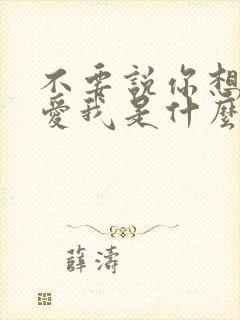 不要說你想
愛我是什麼
薛濤